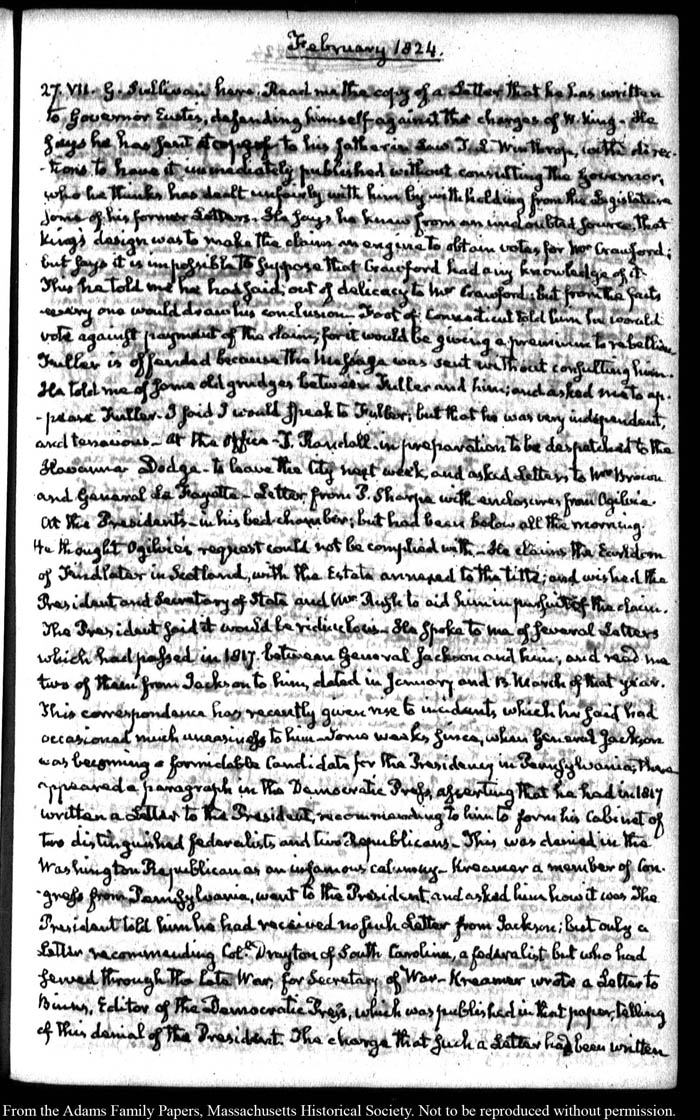 February 1824.
27. VII. G. Sullivan here. Read me the copy of a Letter that he has written
to Governor Eustis, defending himself against the charges of W. King. He
says he has sent a copy of it to his father in Law T. L. Winthrop, with direc-
-tions to have it immediately published without consulting the Governor,
who he thinks has dealt unfairly with him by withholding from the Legislature
some of his former Letters. He says he knew from an undoubted source, that
King's design was to make the claim an engine to obtain votes for Mr Crawford;
but says it is impossible to suppose that Crawford had any knowledge of it.
This he told me he had said, out of delicacy to Mr Crawford; but from the facts
every one would draw his conclusion. Foot of Connecticut told him he would
vote against payment of the claim; for it would be giving a premium to rebellion
Fuller is offended because the Message was sent without consulting him.
He told me of some old grudges between Fuller and him; and asked me to ap-
-pease Fuller. I said I would speak to Fuller; but that he was very independent,
and tenacious. At the Office. T. Randall in preparation to be despatched to the
Havanna. Dodge to leave the City next week, and asked Letters to Mr Brown
and General La Fayette. Letter from P. Sharpe with enclosures from Ogilvie.
At the President's. in his bed-chamber; but had been below all the morning.
He thought Ogilvie's request could not be complied with. He claims the Earldom
of Findlater in Scotland, with the Estate annexed to the title; and wished the
President and Secretary of State and Mr Rush to aid him in pursuit of the claim.
The President said it would be ridiculous. He spoke to me of several Letters
which had passed in 1817. between General Jackson and him; and read me
two of them from Jackson to him, dated in January and 18 March of that year.
This correspondence has recently given rise to incidents which he said had
occasioned much uneasiness to him. Some weeks since, when General Jackson
was becoming a formidable Candidate for the Presidency in Pennsylvania, there
appeared a paragraph in the Democratic Press, asserting that he had in 1817
written a Letter to the President, recommending to him to form his Cabinet of
two distinguished federalists and two Republicans. This was denied in the
Washington Republican as an infamous calumny. Kreamer a member of Con-
-gress from Pennsylvania, went to the President and asked him how it was. The
President told him he had received no such Letter from Jackson; but only a
Letter recommending Coll. Drayton of South Carolina, a federalist but who had
served through the late War, for Secretary of War. Kreamer wrote a Letter to
Binns, Editor of the Democratic Press, which was published in that paper, telling
of this denial of the President. The charge that such a Letter had been written
From the Adams Family Papers, Massachusetts Historical Society. Not to be reproduced without permission.